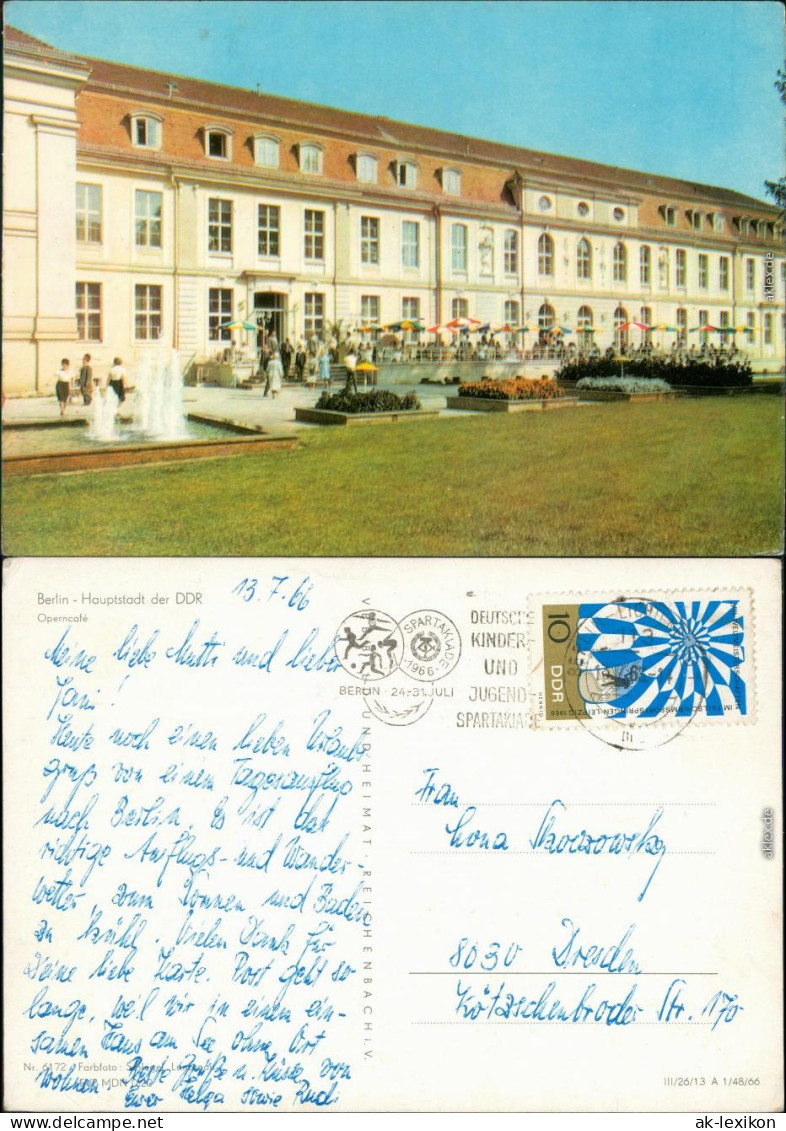 ak-lexikon.de
Berlin - Hauptstadt der DDR
Operncafé
13.7.66
Meine liebe Mutti und lieber
Jani!
Heute noch einen lieben Urlaubs
gruß von einem Tagesausflug
nach Berlin. Es ist das
richtige Ausflugs- und Wander-
wetter, zum Sonnen und Baden
zu kühl. Vielen Dank für
Deine liebe Karte. Post geht so
lange, weil wir in einem ein-
samen Haus am See ohne Ort
wohnen. Beste Grüße u. Küsse von
Euer Helga sowie Rudi
Nr. 6172 Farbfoto:
MDN
UND HEIMAT · REICHENBACH i. V.
SPARTAKIADE
·1966·
BERLIN · 24.-31. JULI
DEUTSCHE
KINDER-
UND
JUGEND-
SPARTAKIADE
10
DDR
IM FALLSCHIRMSPORTSPRINGEN LEIPZIG 1966
Frau
8030 Dresden
Kötzschenbroder Str. 170
III/26/13 A 1/48/66
ak-lexikon.de
ak-lexikon.de